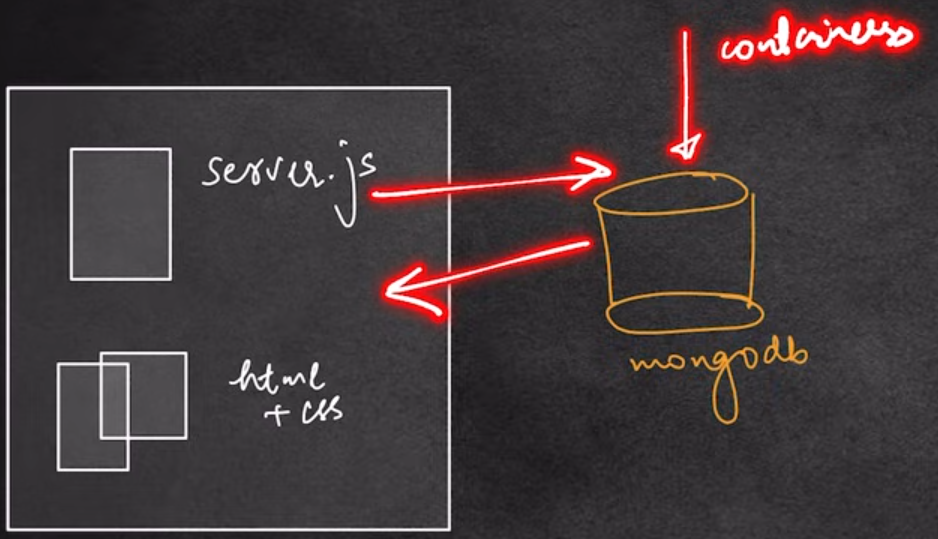 containers
server.js
html
+ css
mongodb